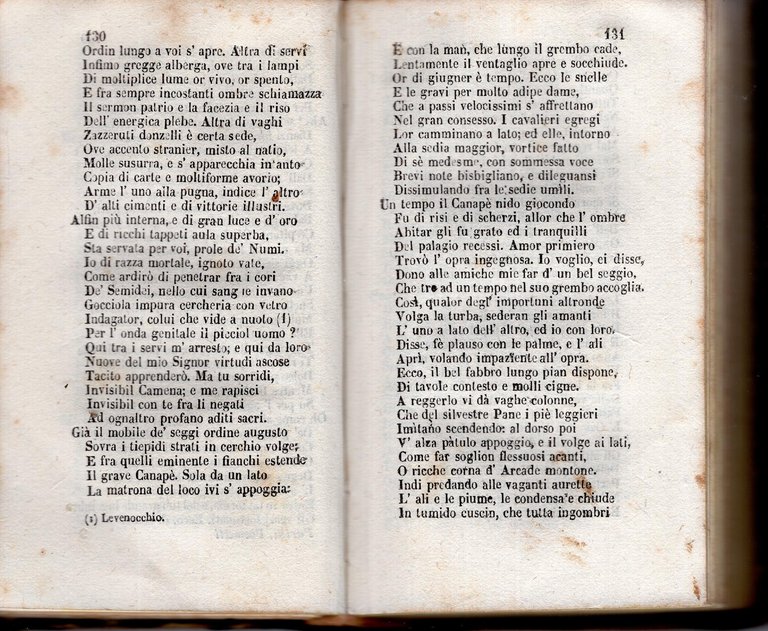 130
Ordin lungo a voi s' apre. Altra di servi
Infimo gregge alberga, ove tra i lampi
Di moltiplice lume or vivo, or spento,
E fra sempre incostanti ombre schiamazza
Il sermon patrio e la facezia e il riso
Dell' energica plebe. Altra di vaghi
Zazzeruti donzelli è certa sede,
Ove accento stranier, misto al natio,
Molle susurra, e s' apparecchia in'anto
Copia di carte e moltiforme avorio;
Arme l' uno alla pugna, indice l' altro
D' alti cimenti e di vittorie illustri.
Alfin più interna, e di gran luce e d' oro
E di ricchi tappeti aula superba,
Sta servata per voi, prole de' Numi.
Io di razza mortale, ignoto vate,
Come ardirò di penetrar fra i cori
De' Semidei, nello cui sangue invano
Gocciola impura cercheria con vetro
Indagator, colui che vide a nuoto (1)
Per l' onda genitale il picciol uomo?
Qui tra i servi m' arresto; e qui da loro
Nuove del mio Signor virtudi ascose
Tacito apprenderò. Ma tu sorridi,
Invisibil Camena; e me rapisci
Invisibil con te fra li negati
Ad ognaltro profano aditi sacri.
Già il mobile de' seggi ordine augusto
Sovra i tiepidi strati in cerchio volge:
E fra quelli eminente i fianchi estende
Il grave Canapè. Sola da un lato
La matrona del loco ivi s' appoggia:
(1) Levenocchio.
131
E con la man, che lungo il grembo cade,
Lentamente il ventaglio apre e socchiude.
Or di giugner è tempo. Ecco le snelle
E le gravi per molto adipe dame,
Che a passi velocissimi s' affrettano
Nel gran consesso. I cavalieri egregi
Lor camminano a lato; ed elle, intorno
Alla sedia maggior, vortice fatto
Di sè medesme, con sommessa voce
Brevi note bisbigliano, e dileguansi
Dissimulando fra le sedie umili.
Un tempo il Canapè nido giocondo
Fu di risi e di scherzi, allor che l' ombre
Abitar gli fu grato ed i tranquilli
Del palagio recessi. Amor primiero
Trovò l' opra ingegnosa. Io voglio, ei disse,
Dono alle amiche mie far d' un bel seggio,
Che tre ad un tempo nel suo grembo accoglia.
Così, qualor degl' importuni altronde
Volga la turba, sederan gli amanti
L' uno a lato dell' altro, ed io con loro.
Disse, fè plauso con le palme, e l' ali
Aprì, volando impaziente all' opra.
Ecco, il bel fabbro lungo pian dispone,
Di tavole contesto e molli cigne.
A reggerlo vi dà vaghe colonne,
Che del silvestre Pane i piè leggieri
Imitano scendendo: al dorso poi
V' alza patulo appoggio, e il volge ai lati,
Come far soglion flessuosi acanti,
O ricche corna d' Arcade montone.
Indi predando alle vaganti aurette
L' ali e le piume, le condensa e chiude
In tumido cuscin, che tutta ingombri